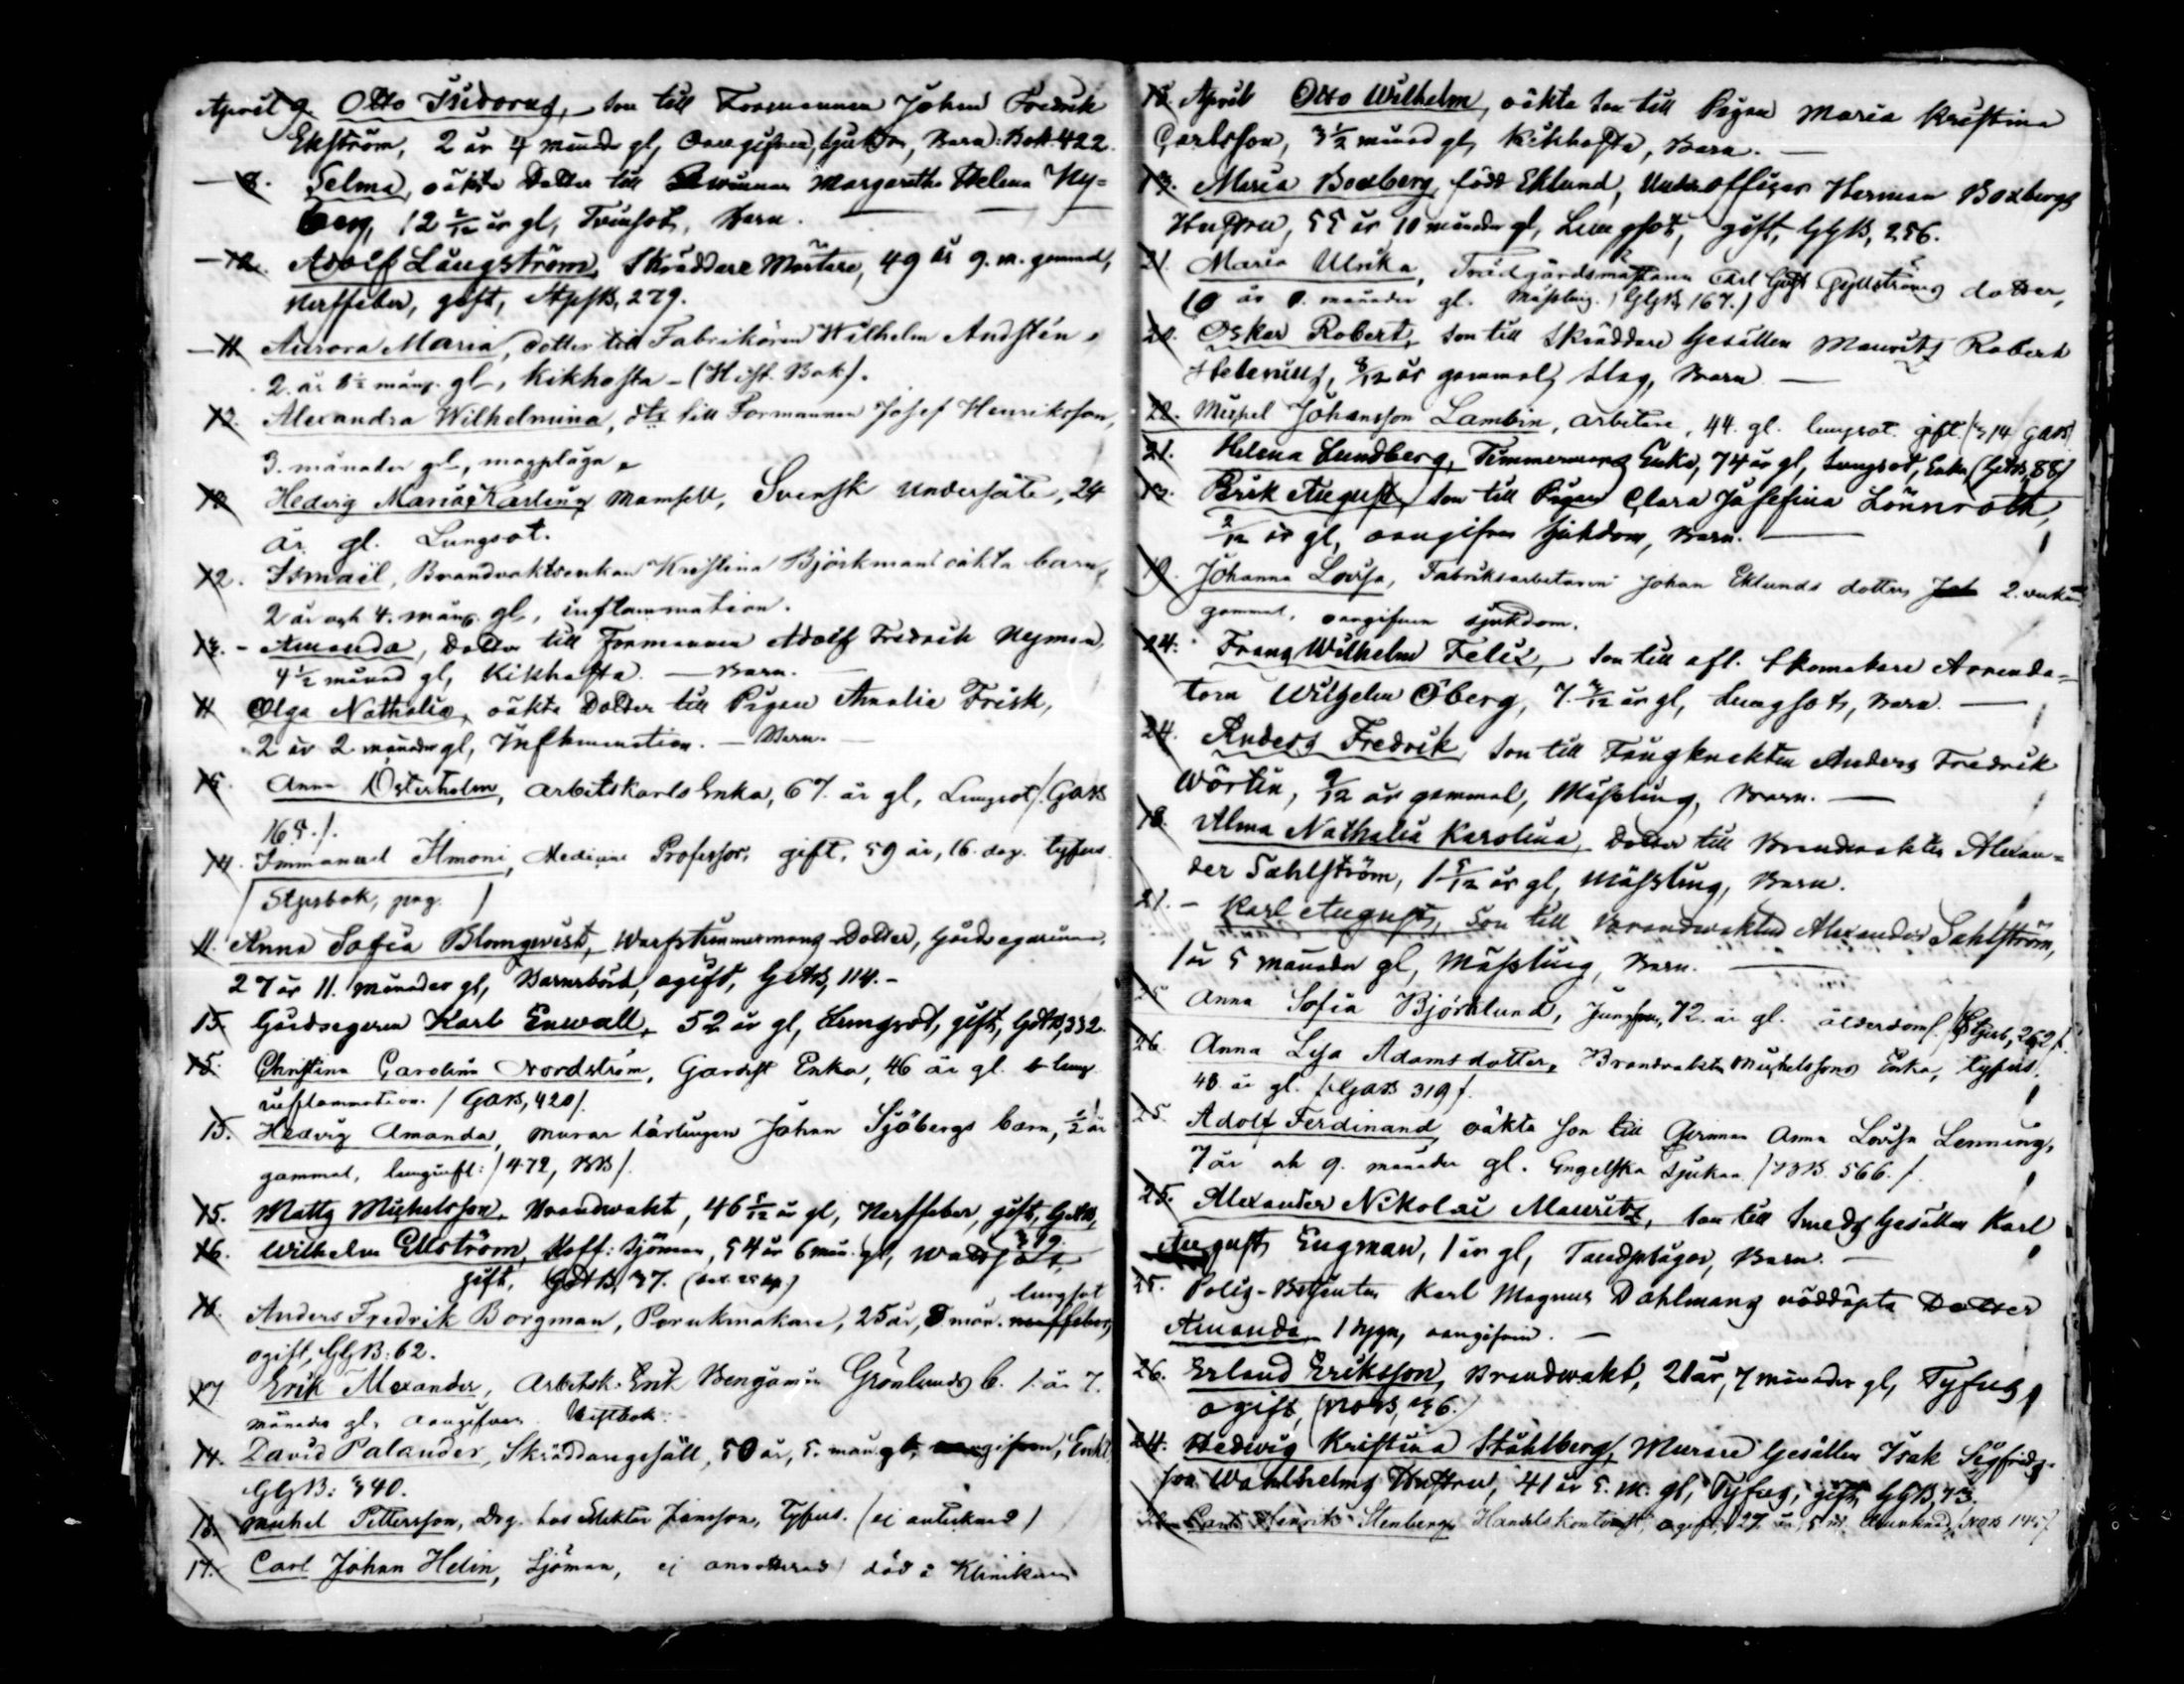 April 9. Otto Isidorus, son till Formannen Johan Fredrik
Ekström, 2 år 4 månder gl, oangifven sjukdom, Barn: Bok 422.
— 8. Selma, oäkta Dotter till Margaretha Helena Ny=
berg, 12 2/12 år gl, Tvinsot, Barn. —
— 12. Adolf Långström, Skräddare Mästare, 49 år 9. m. gammal,
Nerffeber, gift, StpsB, 279.
— 11. Aurora Maria, dotter till Fabrikören Wilhelm Andstén,
2 år 8½ mån. gl, Kikhosta - (Hist. Bok).
12. Alexandra Wilhelmina, dtr till Formannen Josef Henriksson,
3. månader gl, magplåga,
10. Hedvig Maria Karlenz Mamsell, Svensk Undersåte, 24
år gl. Lungsot.
12. Ismail, Brandvaktsenkan Kristina Björkmans oäkta barn,
2 år och 4. mån. gl, inflammation.
12. - Amanda, Dotter till Formannen Adolf Fredrik Nyman,
4½ månad gl, Kikhosta. — Barn. —
11 Olga Nathalia, oäkta Dotter till Pigan Amalia Frisk,
2 år 2 månader gl, Inflammation. — Barn. —
15. Anna Österholm, arbetskarls Enka, 67 år gl, Lungsot /GAB
165./.
14. Immanuel Ilmoni, Medicine Professor, gift, 59 år, 16. dag. tyfus.
/ Stpsbok, pag. /
11. Anna Sofia Blomqvist, Warfstimmermans Dotter, Gårdsegarinna,
27 år 11. månader gl, Barnsbörd, ogift, GEtB, 114. -
15. Gårdsegaren Karl Enwall, 52 år gl, Lungsot, gift, GEtB, 332.
15. Christina Carolina Nordström, Gardist Enka, 46 år gl. lung
inflammation. / GAB, 420/.
15. Hedvig Amanda, Murar lärlingen Johan Sjöbergs barn, ½ år
gammal, lunginfl: /472, BB/.
15. Matts Michelsson, Brandwakt, 46 5/12 år gl, Nerffeber, gift, GEtB,
16. Wilhelm Ellström, Koff: Sjöman, 54 år 6 mån. gl, Wattsot,
gift, GEtB, 37.
16. Anders Fredrik Borgman, Perukmakare, 25 år, 8 mån. lungsot
ogift, GGB: 62.
17 Erik Alexander, Arbetsk. Erik Benjamin Grönlunds b. 1. år 7.
månader gl, oangifven. Histbok:
14. David Palander, Skräddaregesäll, 50 år, 5. mån gl,
GGB: 340.
16. Michel Pettersson, Drg. hos Jansson, Tyfus. (ej antecknad)
17. Carl Johan Helin, Sjöman, ej annoterad död å Kliniken
18. April Otto Wilhelm, oäkta Son till Pigan Maria Kristina
Carlsson, 3½ månad gl, Kikhosta, Barn. —
13. Maria Boxberg, född Eklund, Underofficer Herman Boxbergs
Hustru, 55 år 10 månader gl, Lungsot, gift, GGB, 256.
21. Maria Ulrika, Trädgårdsmästaren Carl Gust Gyllströms dotter,
10 år 8. månader gl. Mässling. / GGB 167./
20. Oskar Robert, son till Skräddare Gesällen Maurits Robert
Helenius, 8/12 år gammal, slag, Barn —
22. Michel Johansson Lambin, arbetare, 44. gl. lungsot. gift. /314 GAB/
21. Helena Lundberg, Timmermans Enka, 74 år gl, Lungsot, Enka (GEtB, 88/
13. Erik August, Son till Pigan Clara Josefina Lönnroth,
2/12 år gl, oangifven sjukdom, Barn. —
19. Johanna Lovisa, Fabriksarbetaren Johan Eklunds dotter, 2. veckor
gammal, oangifven sjukdom.
24. Frans Wilhelm Felix, Son till afl. Skomakare Arrenda=
torn Wilhelm Öberg, 7 3/12 år gl, Lungsot, Barn. —
24. Anders Fredrik, Son till Fångknekten Anders Fredrik
Wörtin, 9/12 år gammal, Mässling, Barn. —
18. Alma Nathalia Karolina, Dotter till Brandvakten Alexan=
der Sahlström, 1 5/12 år gl, Mässling, Barn.
21. - Karl August, Son till Brandwakten Alexander Sahlström,
1 år 5 månader gl, Mässling, Barn. —
25 Anna Sofia Björklund, Jungfru, 72. år gl. ålderdom /Stpsb, 262/.
26. Anna Lisa Adamsdotter, Brandvakten Michelssons Enka, tyfus.
48. år gl. /GAB 319/.
25. Adolf Ferdinand, oäkta son till Anna Lovisa Lenning,
7 år och 9. månader gl. Engelska Sjukan /BB. 566./.
25. Alexander Nikolai Mauritz, Son till Smeds Gesällen Karl
August Engman, 1 år gl, Tandplågor, Barn. —
25. Polis-Betjenten Karl Magnus Dahlmans nöddöpta Dotter
Amanda, 1 dygn, oangifvit. —
26. Erland Eriksson, Brandwakt, 21 år, 7 månader gl, Tyfus,
ogift, (NoB, 36.)
24. Hedvig Kristina Ståhlberg, Murare Gesällen Isak Sigfrids-
son Wahlholms Hustru, 41 år 5. m. gl, Tyfus, gift, GGB, 73.
Carl Henrik Stenberg, Handelskontorist, ogift, 27 år, 5 m. NoB 145/.